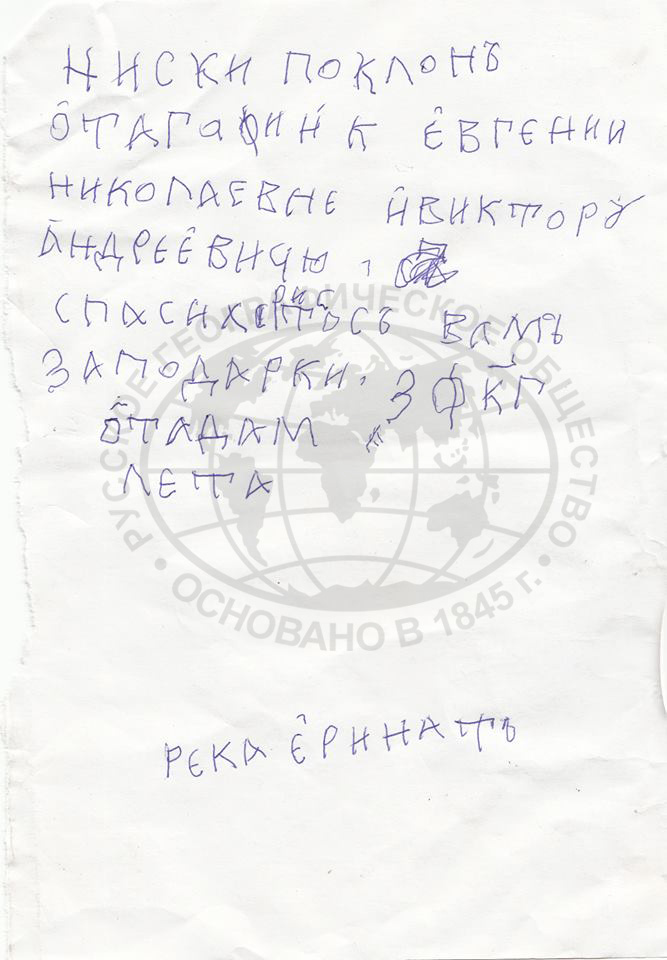 НИСКИ ПОКЛОНЪ
ОТАГАФИИ К ЕВГЕНИИ
НИКОЛАЕВНЕ ИВИКТОРУ
АНДРЕЕВИЧЮ,
ВАМЪ
ЗАПОДАРКИ,
ОТАДАМ
ЛЕТА
РЕКА ЕРИНАТЪ
РУССКОЕ ГЕОГРАФИЧЕСКОЕ ОБЩЕСТВО
• ОСНОВАНО В 1845 г. •